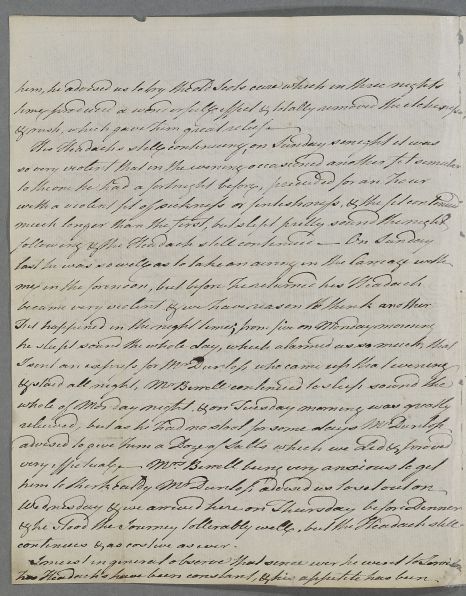 him, he advised us to try the old Scots cure which in three nights
time, produced a wonderful effect & totally removed the itchiness
& rush, which gave him great relief
His Headachs still continuing on Sunday senight it was
so very violent that in the evening occasioned another fit similar
to the one he had a fortnight before, preceeded for an Hour
with a violent fit of sickness or faintishness, & the fit continued
much longer than the first, but slept pretty sound the night
following & the Headach still continued — On Sunday
last he was so well as to take an airing in the Carriage with
me in the forenoon, but before he returned his Headach
became very violent & we have reason to think another
Fit happined in the night time; from six on Monday morning
he slept sound the whole day, which alarmed us so much that
I sent an express for Mr Dunlop who came up that evening
& staid all night, Mr Berrell continued to sleep sound the
whole of Monday night, & on Tuesday morning was greatly
relieved, but as he had no stool for some days Mr Dunlop
advised to give him a Dose of Salts which we did & proved
very effectual — Mrs Berrell being very anxious to get
him to the Mr Dunlop advised us to set out on
Wednesday & we arrived here on Thursday before Dinner
& he stood the Journey tollerably well, but the Headach still
continues & as costive as ever.
I must in general observe that since ever he went to
his Headachs have been constant, & his appetite has been